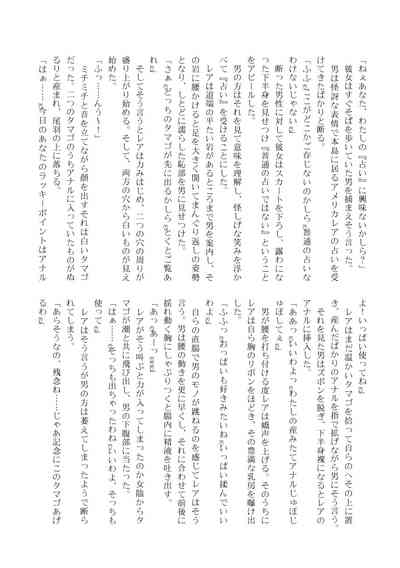 「ねぇあなた、わたしの『占い』に興味ないかしら？」
彼女はすぐそばを歩いていた男を捕まえそう言った。
男は怪訝な表情で本島に居るアメリカレアの占いを受
けてきたばかりと断る。
「ふふ♂ここがどこかご存じないのかしら♂普通の占いな
わけないじゃない♂」
断った男性に対して彼女はスカートを下ろし、露わにな
った下半身を見せつけ『普通の占いではない』ということ
をアピールした。
男の方はそれを見て意味を理解し、怪しげな笑みを浮か
べて『占い』を受けることにした。
レアは道端の平たい岩があるところまで男を案内し、そ
の岩に腰かけると足を大きく開いてまんぐり返しの姿勢
となり、しとどに濡らした恥部を男に見せつけた。
「さぁ♂どっちのタマゴが先に出るかしら♂とくとご覧あ
れ♂」
そしてそう言うとレアは力みはじめ、二つの穴の周りが
盛り上がり始める。そして、両方の穴から白いものが見え
始めた。
「ふっ……んうぅ！」
ミチミチと音を立てながら顔を出すそれは白いタマゴ
だった。二つのタマゴのうちアナルに入っていたものがぬ
るりと産まれ、尾羽の上に落ちる。
「はぁ……♂今日のあなたのラッキーポイントはアナル
よ♂いっぱい使ってね♂」
レアはまだ温かいタマゴを拾って自らのへその上に置
き、産んだばかりのアナルを指で拡げながら男にそう言う。
それを見た男はズボンを脱ぎ、下半身裸になるとレアの
アナルに挿入した。
「ああっ♂いいわよっ♂わたしの産みたてアナルじゅぼじ
ゅぼしてぇ♂」
男が腰を打ち付ける度レアは嬌声を上げる。そのうちに
レアは自ら胸のリボンをほどき、その豊満な乳房を曝け出
した。
「ふふっ♂おっぱいも好きみたいね♂いっぱい揉んでいい
わよ♂」
自らの直腸で男のモノが跳ねるのを感じてレアはそう
言う。男は腰の動きを更に早くし、それに合わせて前後に
揺れ動く胸にしゃぶりつくと腸内に精液を吐き出す。
「あっ♂あーっ♂」
レアがそう叫ぶと力が入ってしまったのか女陰からタ
マゴが潮と共に飛び出し、男の下腹部に当たった。
「はぁ……♂こっちも出ちゃったわね♂いいわよ、そっちも
使って♂」
レアはそう言うが男の方は萎えてしまったようで断ら
れてしまう。
「あらそうなの、残念ね……じゃあ記念にこのタマゴあげ
るわ♂